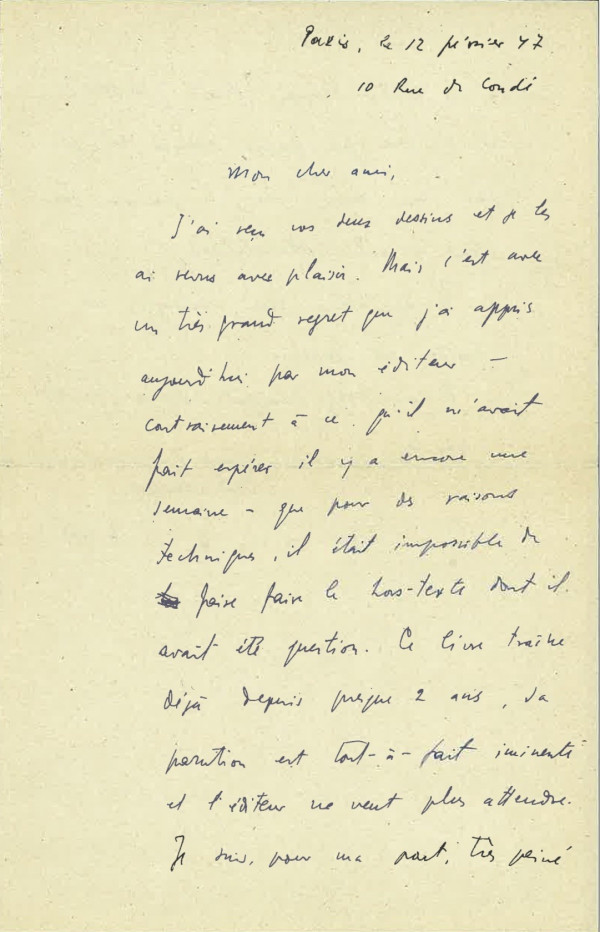 Paris, le 12 février 47
10 Rue de Condé
Mon cher ami,
J'ai reçu vos deux dessins et je les
ai revus avec plaisir. Mais c'est avec
un très grand regret que j'ai appris
aujourd'hui par mon éditeur –
contrairement à ce qu'il m'avait
fait espérer il y a encore une
semaine – que pour des raisons
techniques, il était impossible de
faire faire le hors-texte dont il
avait été question. Ce livre traîne
déjà depuis presque 2 ans, sa
parution est tout-à-fait iminente
et l'éditeur ne veut plus attendre.
Je suis, pour ma part, très peiné